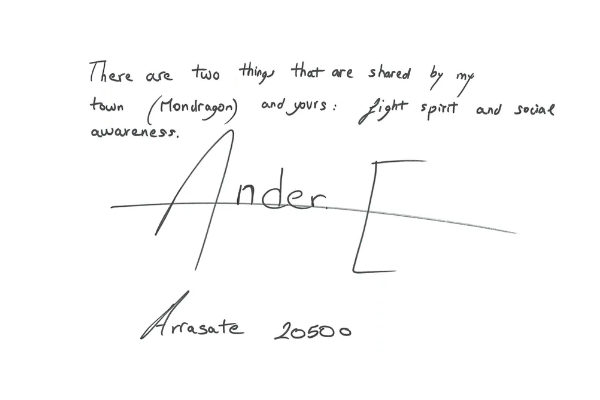 There are two things that are shared by my
town (Mondragon) and yours: fight spirit and social
awareness.
Ander E
Arrasate 20500